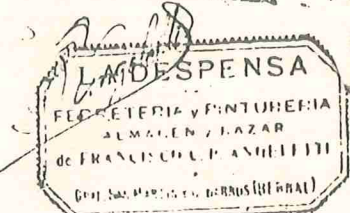 LA DESPENSA
FERRETERIA y PINTURERIA
ALMACEN y BAZAR
de FRANCISCO C. P. ANGELETTI
GRAL. SAN MARTIN (BERNAL)